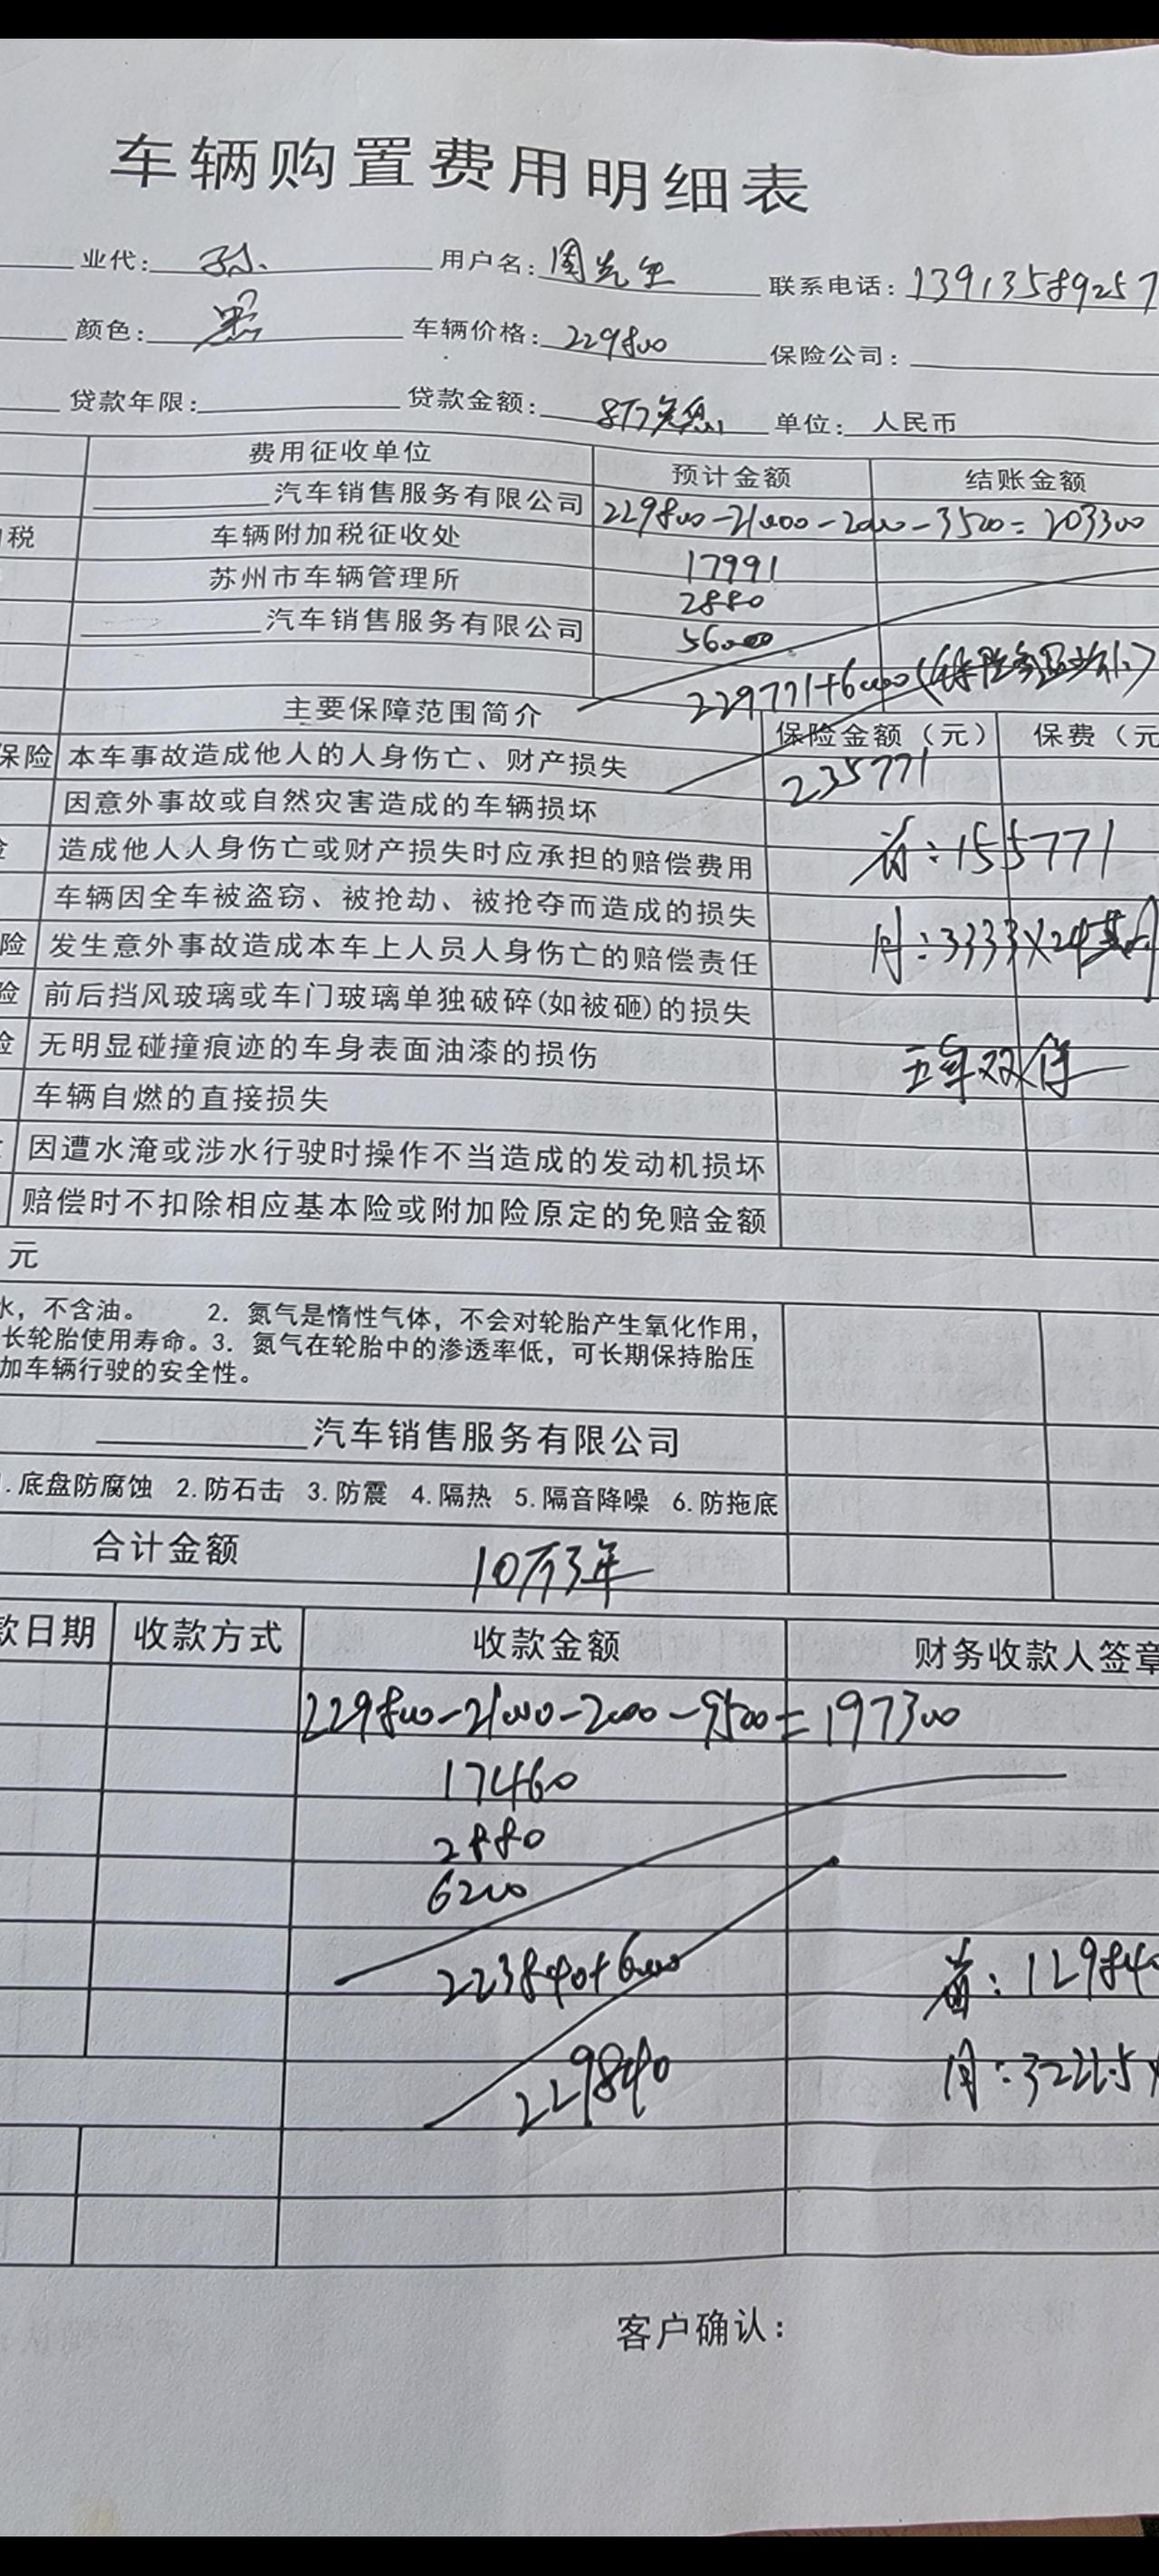 车辆购置费用明细表
业代: 孙 用户名: 周先生 联系电话: 13913589257
颜色: 黑 车辆价格: 229800 保险公司:
贷款年限: 贷款金额: 8万 单位: 人民币
费用征收单位 预计金额 结账金额
汽车销售服务有限公司 229800-21000-2000-3500=203300
税 车辆附加税征收处 17991
苏州市车辆管理所 2880
汽车销售服务有限公司 5600
229771+6000(
主要保障范围简介 保险金额(元) 保费(元
保险 本车事故造成他人的人身伤亡、财产损失 235771
因意外事故或自然灾害造成的车辆损坏
造成他人人身伤亡或财产损失时应承担的赔偿费用 首:155771
车辆因全车被盗窃、被抢劫、被抢夺而造成的损失
险 发生意外事故造成本车上人员人身伤亡的赔偿责任 月:3333×24
险 前后挡风玻璃或车门玻璃单独破碎(如被砸)的损失
险 无明显碰撞痕迹的车身表面油漆的损伤 五年双保
车辆自燃的直接损失
因遭水淹或涉水行驶时操作不当造成的发动机损坏
赔偿时不扣除相应基本险或附加险原定的免赔金额
元
水，不含油。 2. 氮气是惰性气体，不会对轮胎产生氧化作用，
长轮胎使用寿命。3. 氮气在轮胎中的渗透率低，可长期保持胎压
加车辆行驶的安全性。
汽车销售服务有限公司
1.底盘防腐蚀 2.防石击 3.防震 4.隔热 5.隔音降噪 6.防拖底
合计金额 10万3年
款日期 收款方式 收款金额 财务收款人签章
229800-21000-2000-9500=197300
17460
2880
6200
223840+6000 首:129840
月:3222.5×
229840
客户确认: